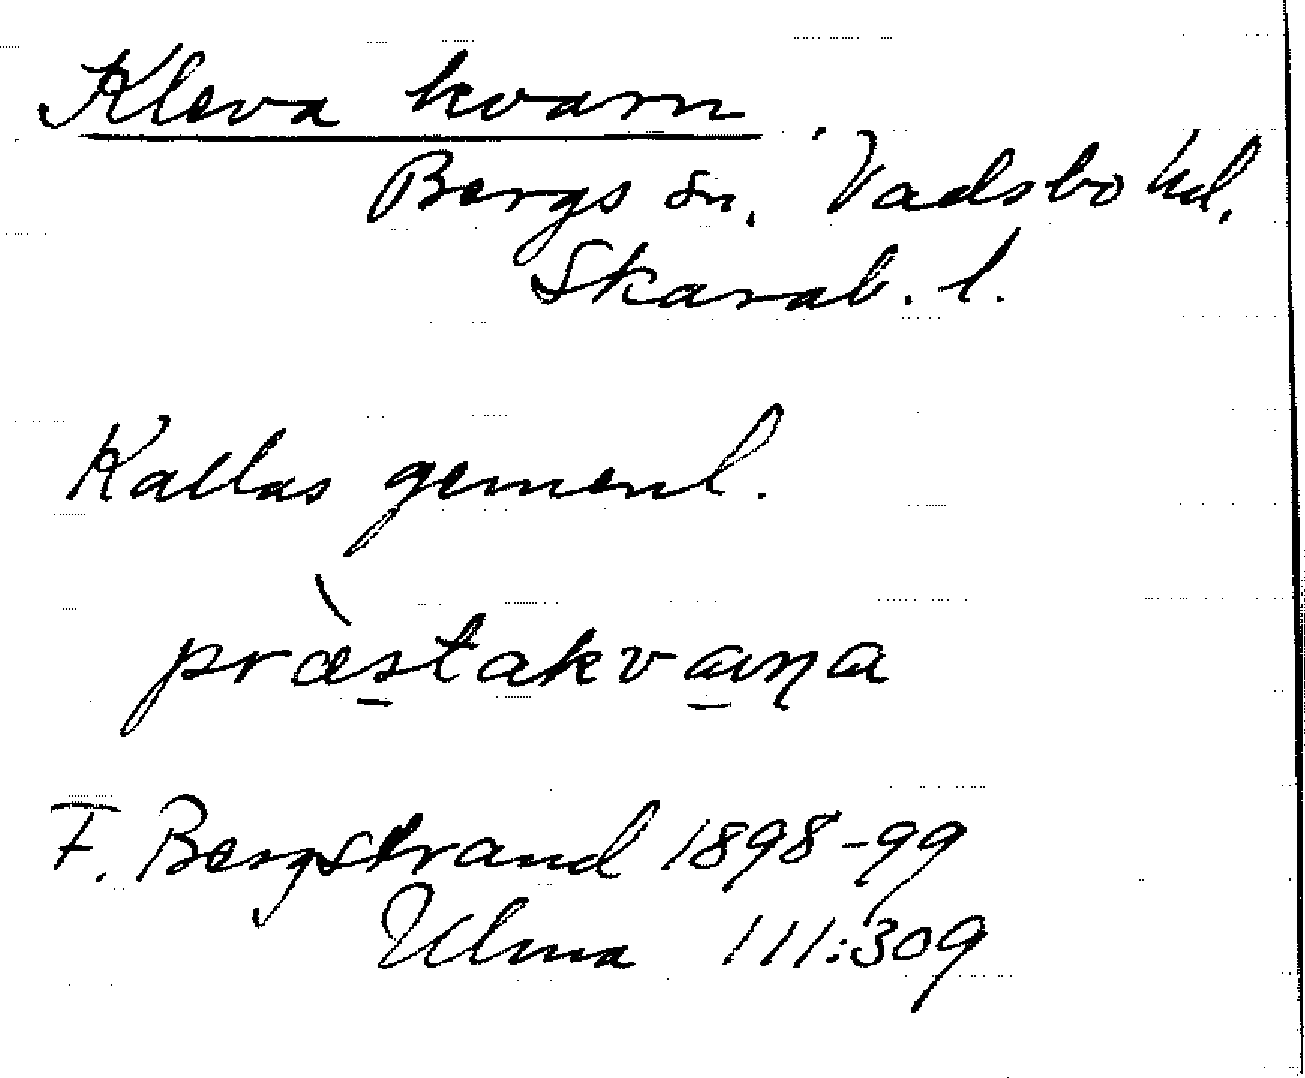 Kleva kvarn
Bergs sn. Vadsbo hd.
Skarab. l.
Kallas gemenl.
præ̀stakvaṇa
F. Bergstrand 1898-99
Ulma 111:309